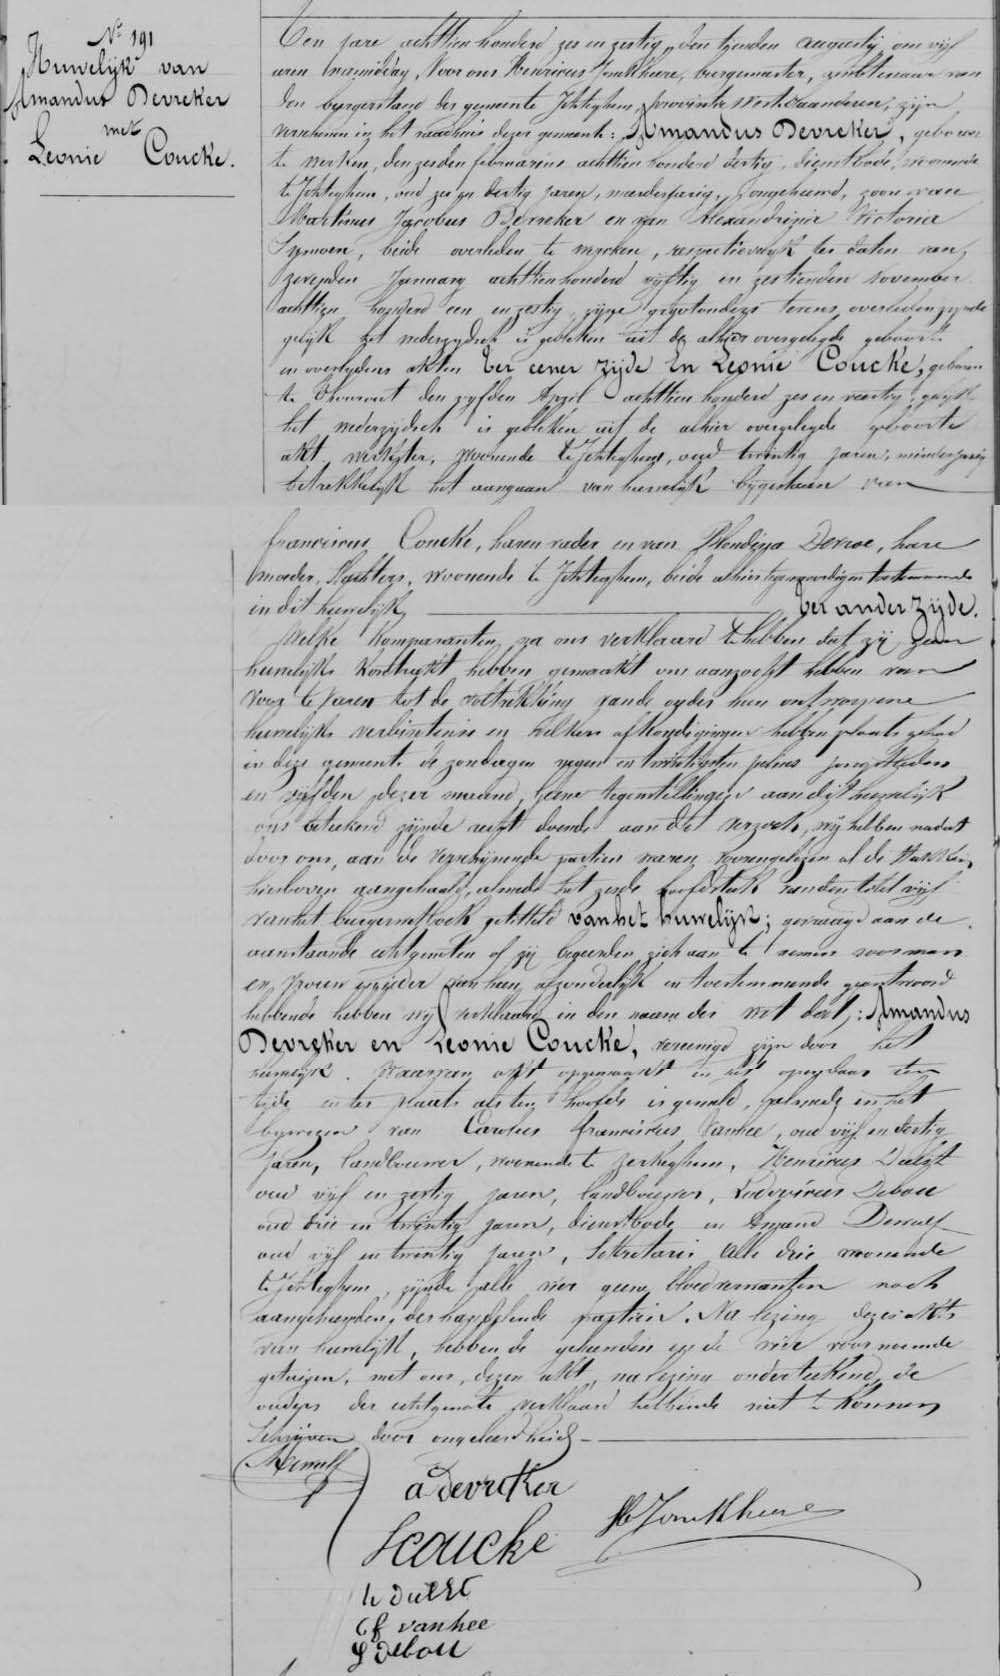 N.r 191
Huwelijk van
Amandus Devreker
met
Leonie Coucke.
Ten jare achttien honderd zes en zestig, den tienden augusty, om vijf
uren namiddag, Voor ons Henricus Jonckheere, burgemeester, ambtenaar van
den burgerstand der gemeente Ichteghem, provintie Westvlaanderen, zijn
verschenen in het raedhuis dezer gemeente: Amandus Devreker, geboren
te Werken, den zesden februarius achttien honderd dertig, dienstbode, woonende
te Ichteghem, oud zes en dertig jaren, meerderjarig, jongheid, zoon van
Martinus Jacobus Devreker en van Alexandrina Victoria
Symoen, beide overleden te Werken, respectievelijk ter daten van
January achttien honderd vijftig en zestienden November
achttien honderd een en zestig, zijne grootouders tevens overleden zijnde
gelijk het wederzijdsch is gebleken uit de alhier overgelegde geboorte
en overlydens akten ter eener zijde En Leonie Coucke, geboren
te den vyfden April achttien honderd zes en veertig, gelijk
het wederzijdsch is gebleken uit de alhier overgelegde geboorte
akt, werkster, woonende te Ichteghem, oud twintig jaren, minderjarig
betrekkelijk het aangaan van huwelijk bijgestaan van
franciscus Coucke, haren vader en van Blondina Devroe, hare
moeder, Pachters, woonende te Ichteghem, beide alhier tegenwoordig en toestemmende
in dit huwelijk, ter ander Zijde.
Welke komparanten, na ons verklaard te hebben dat zij geen
huwelijks kontrakt hebben gemaakt ons aanzocht hebben van
voor te varen tot de voltrekking van de onder hun ontworpene
huwelijks verbintenis en welkers afkondigingen hebben plaats gehad
in deze gemeente de zondagen negen en twintigsten julius jongstleden
en vijfden dezer maand, Geene tegenstellingen aan dit huwelijk
ons beteekend zijnde recht doende aan dit verzoek, wij hebben nadat
door ons, aan de verschijnende partien waren voorengelezen al de stukken
hierboven aangehaald, alsmede het zesde hoofdstuk van den titel vijf
van het burgerwetboek getiteld van het huwelijk; gevraagd aan de
aanstaande echtgenoten of zij begeerden zich aan te nemen voor man
en vrouw ijeder van hen afzonderlijk en toestemmende geantwoord
hebbende hebben wij verklaard in den naam der wet dat: Amandus
Devreker en Leonie Coucke, vereenigd zijn door het
huwelijk. Waarvan akt opgemaakt in het openbaar ten
tijde en ter plaats als ten hoofde is gemeld, alsmede in het
bijwezen van Carolus franciscus Vanhee, oud vijf en dertig
jaren, landbouwer, woonende te Zerkeghem, Henricus Dulst
oud vijf en zestig jaren, landbouwer, Ludovicus Debou
oud drie en twintig jaren, dienstbode, en Amand Dewulf
oud vijf en twintig jaren, Sekretaris Alle drie woonende
te Ichteghem, zijnde alle vier geene bloedverwanten noch
aangehuwden der handelende partien. Na lezing dezer Akts
van huwelijk, hebben de gehuwden en de vier voornoemde
getuigen, met ons, dezen akt, na lezing onderteekend, de
ouders der echtgenote verklaard hebbende niet te konnen
schrijven door ongeleerdheid.
ADewulf
a Devreker
HJonckheere
L Coucke
h Dulst
Cf vanhee
L Debou